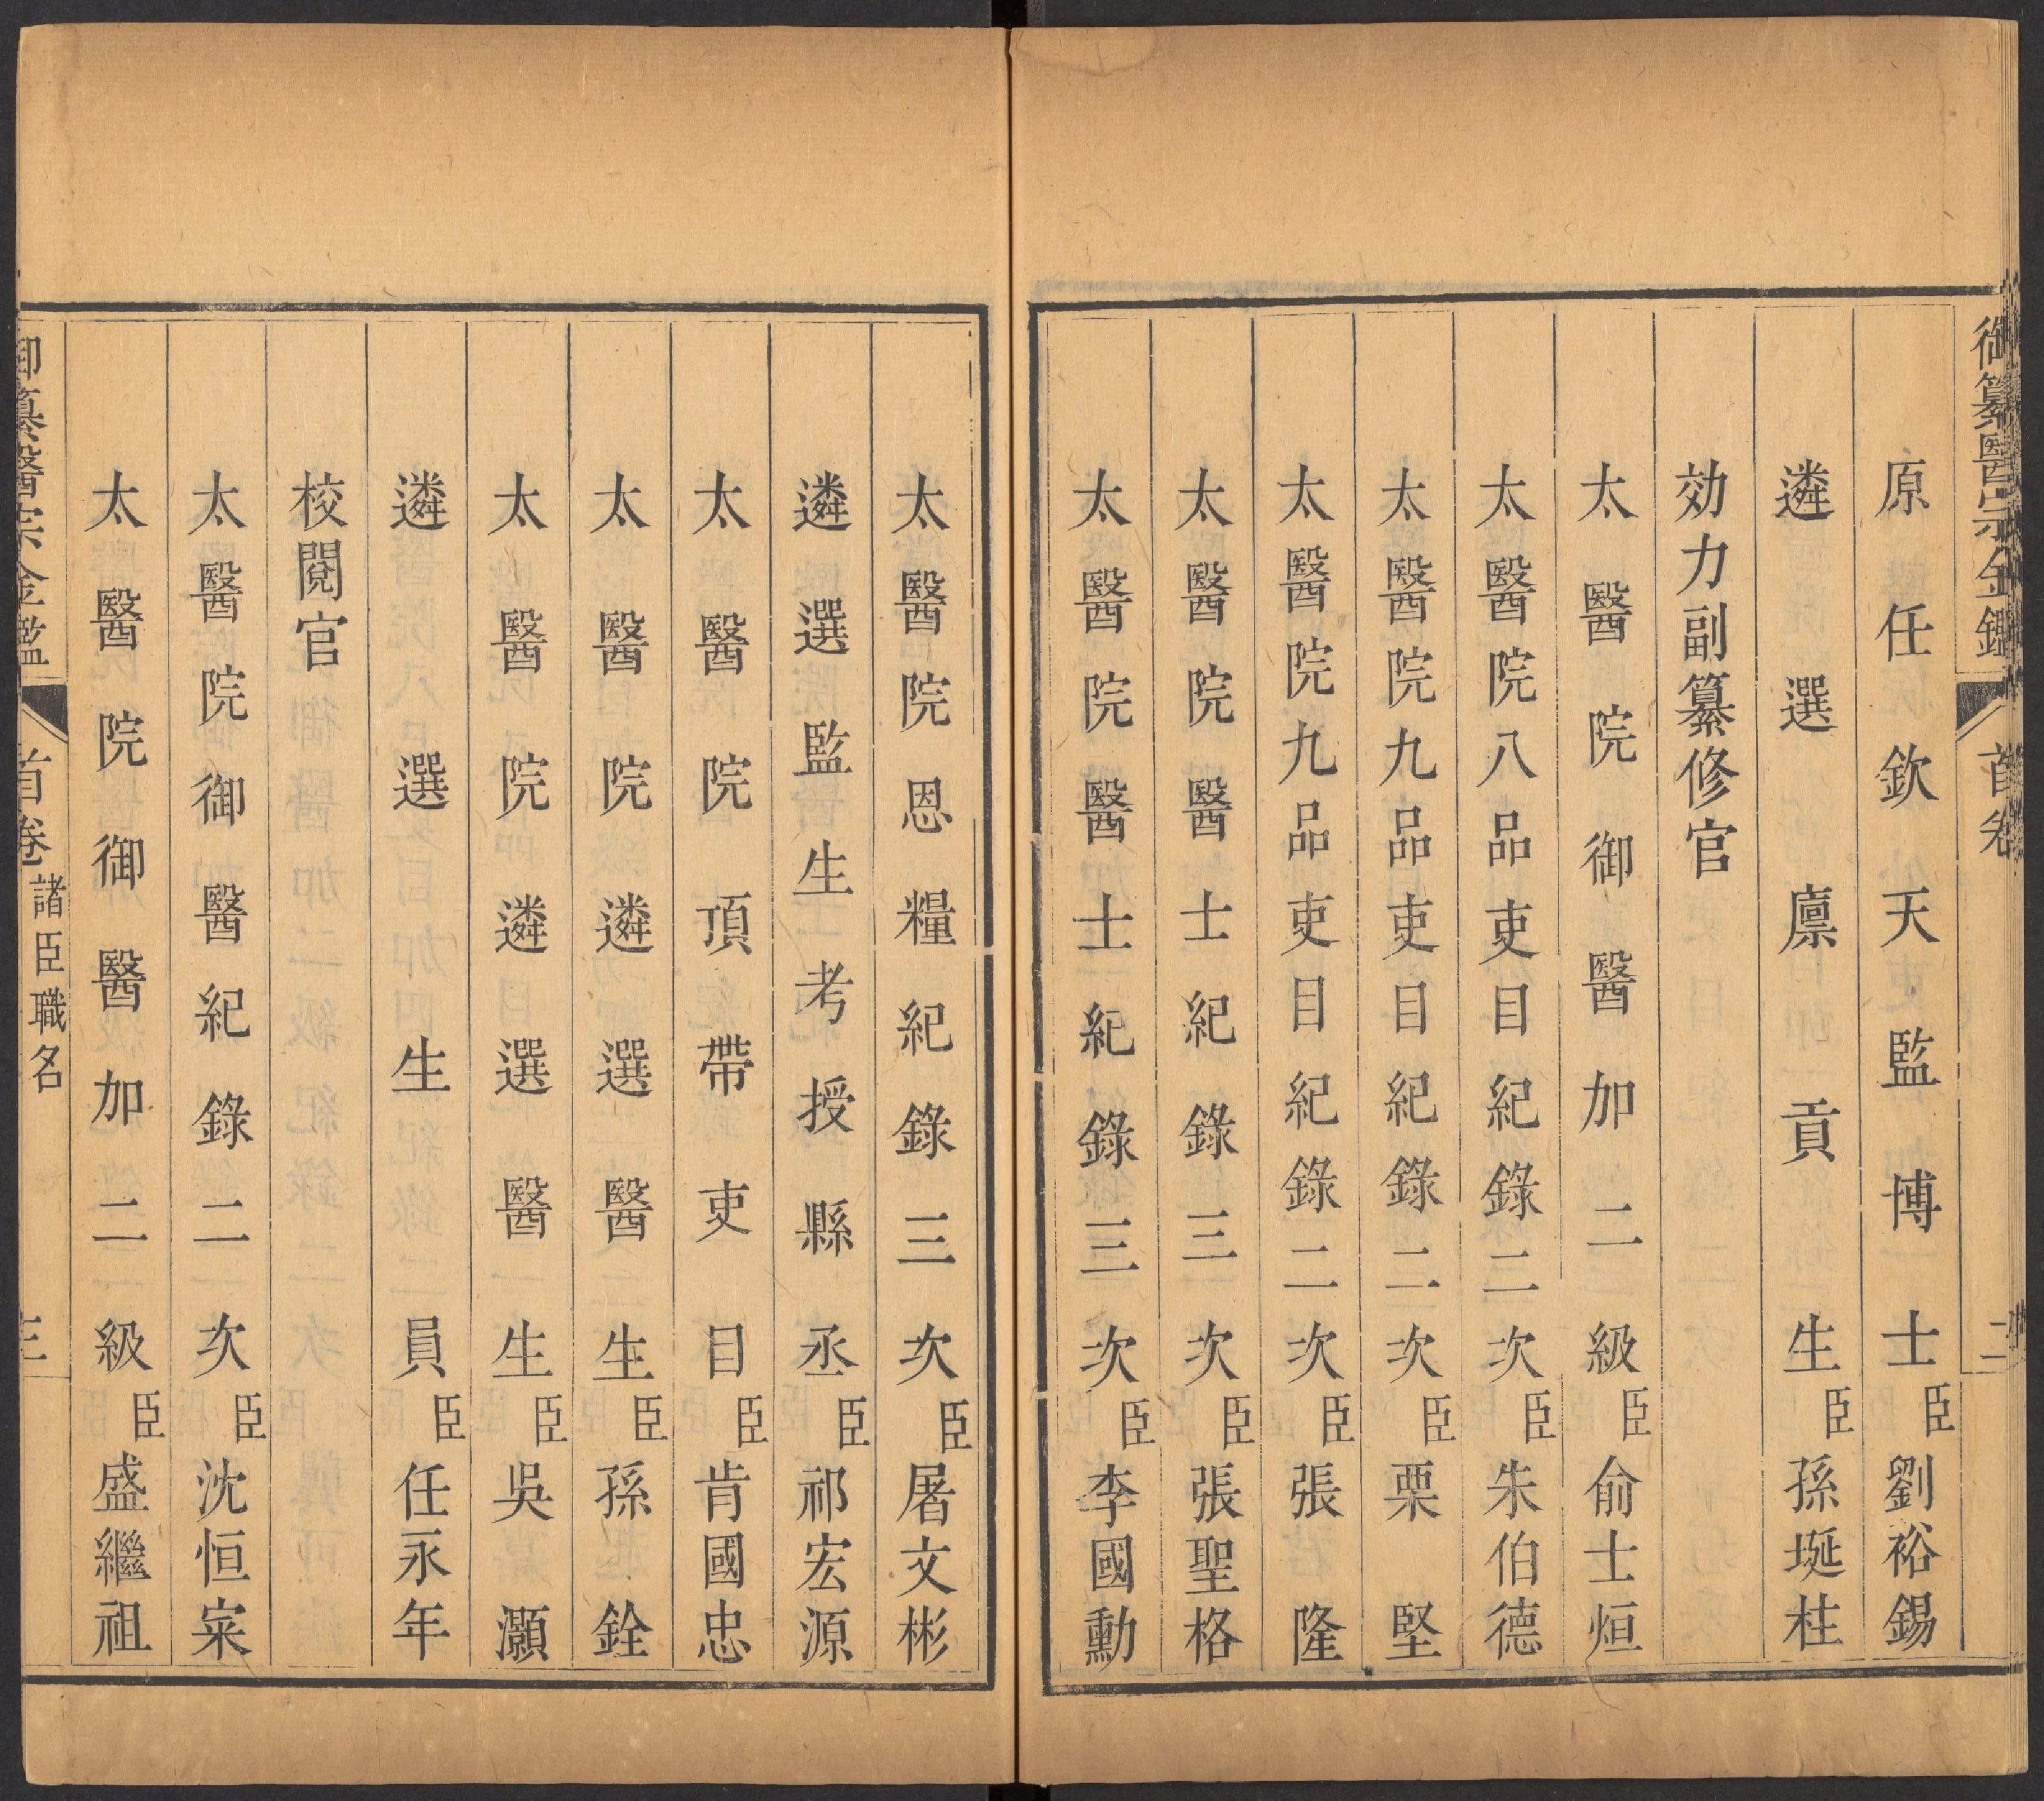 御纂醫宗金鑑 首卷 二
原任欽天監博士臣劉裕錫
遴選廩貢生臣孫埏柱
効力副纂修官
太醫院御醫加二級臣俞士烜
太醫院八品吏目紀錄二次臣朱伯德
太醫院九品吏目紀錄二次臣栗堅
太醫院九品吏目紀錄二次臣張隆
太醫院醫士紀錄三次臣張聖格
太醫院醫士紀錄三次臣李國勳
太醫院恩糧紀錄三次臣屠文彬
遴選監生考授縣丞臣祁宏源
太醫院頂帶吏目臣肯國忠
太醫院遴選醫生臣孫銓
太醫院遴選醫生臣吳灝
遴選生員臣任永年
校閱官
太醫院御醫紀錄二次臣沈恒寀
太醫院御醫加二級臣盛繼祖
御纂醫宗金鑑 首卷 諸臣職名 三